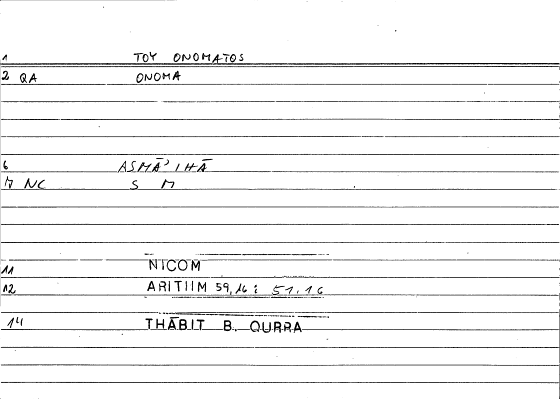 1 TOY ONOMATOS
2 QA ONOMA
6 ASMĀʾIHĀ
7 NC S M
11 NICOM
12 ARITIIM 59,16 : 51,16
14 THĀBIT B. QURRA